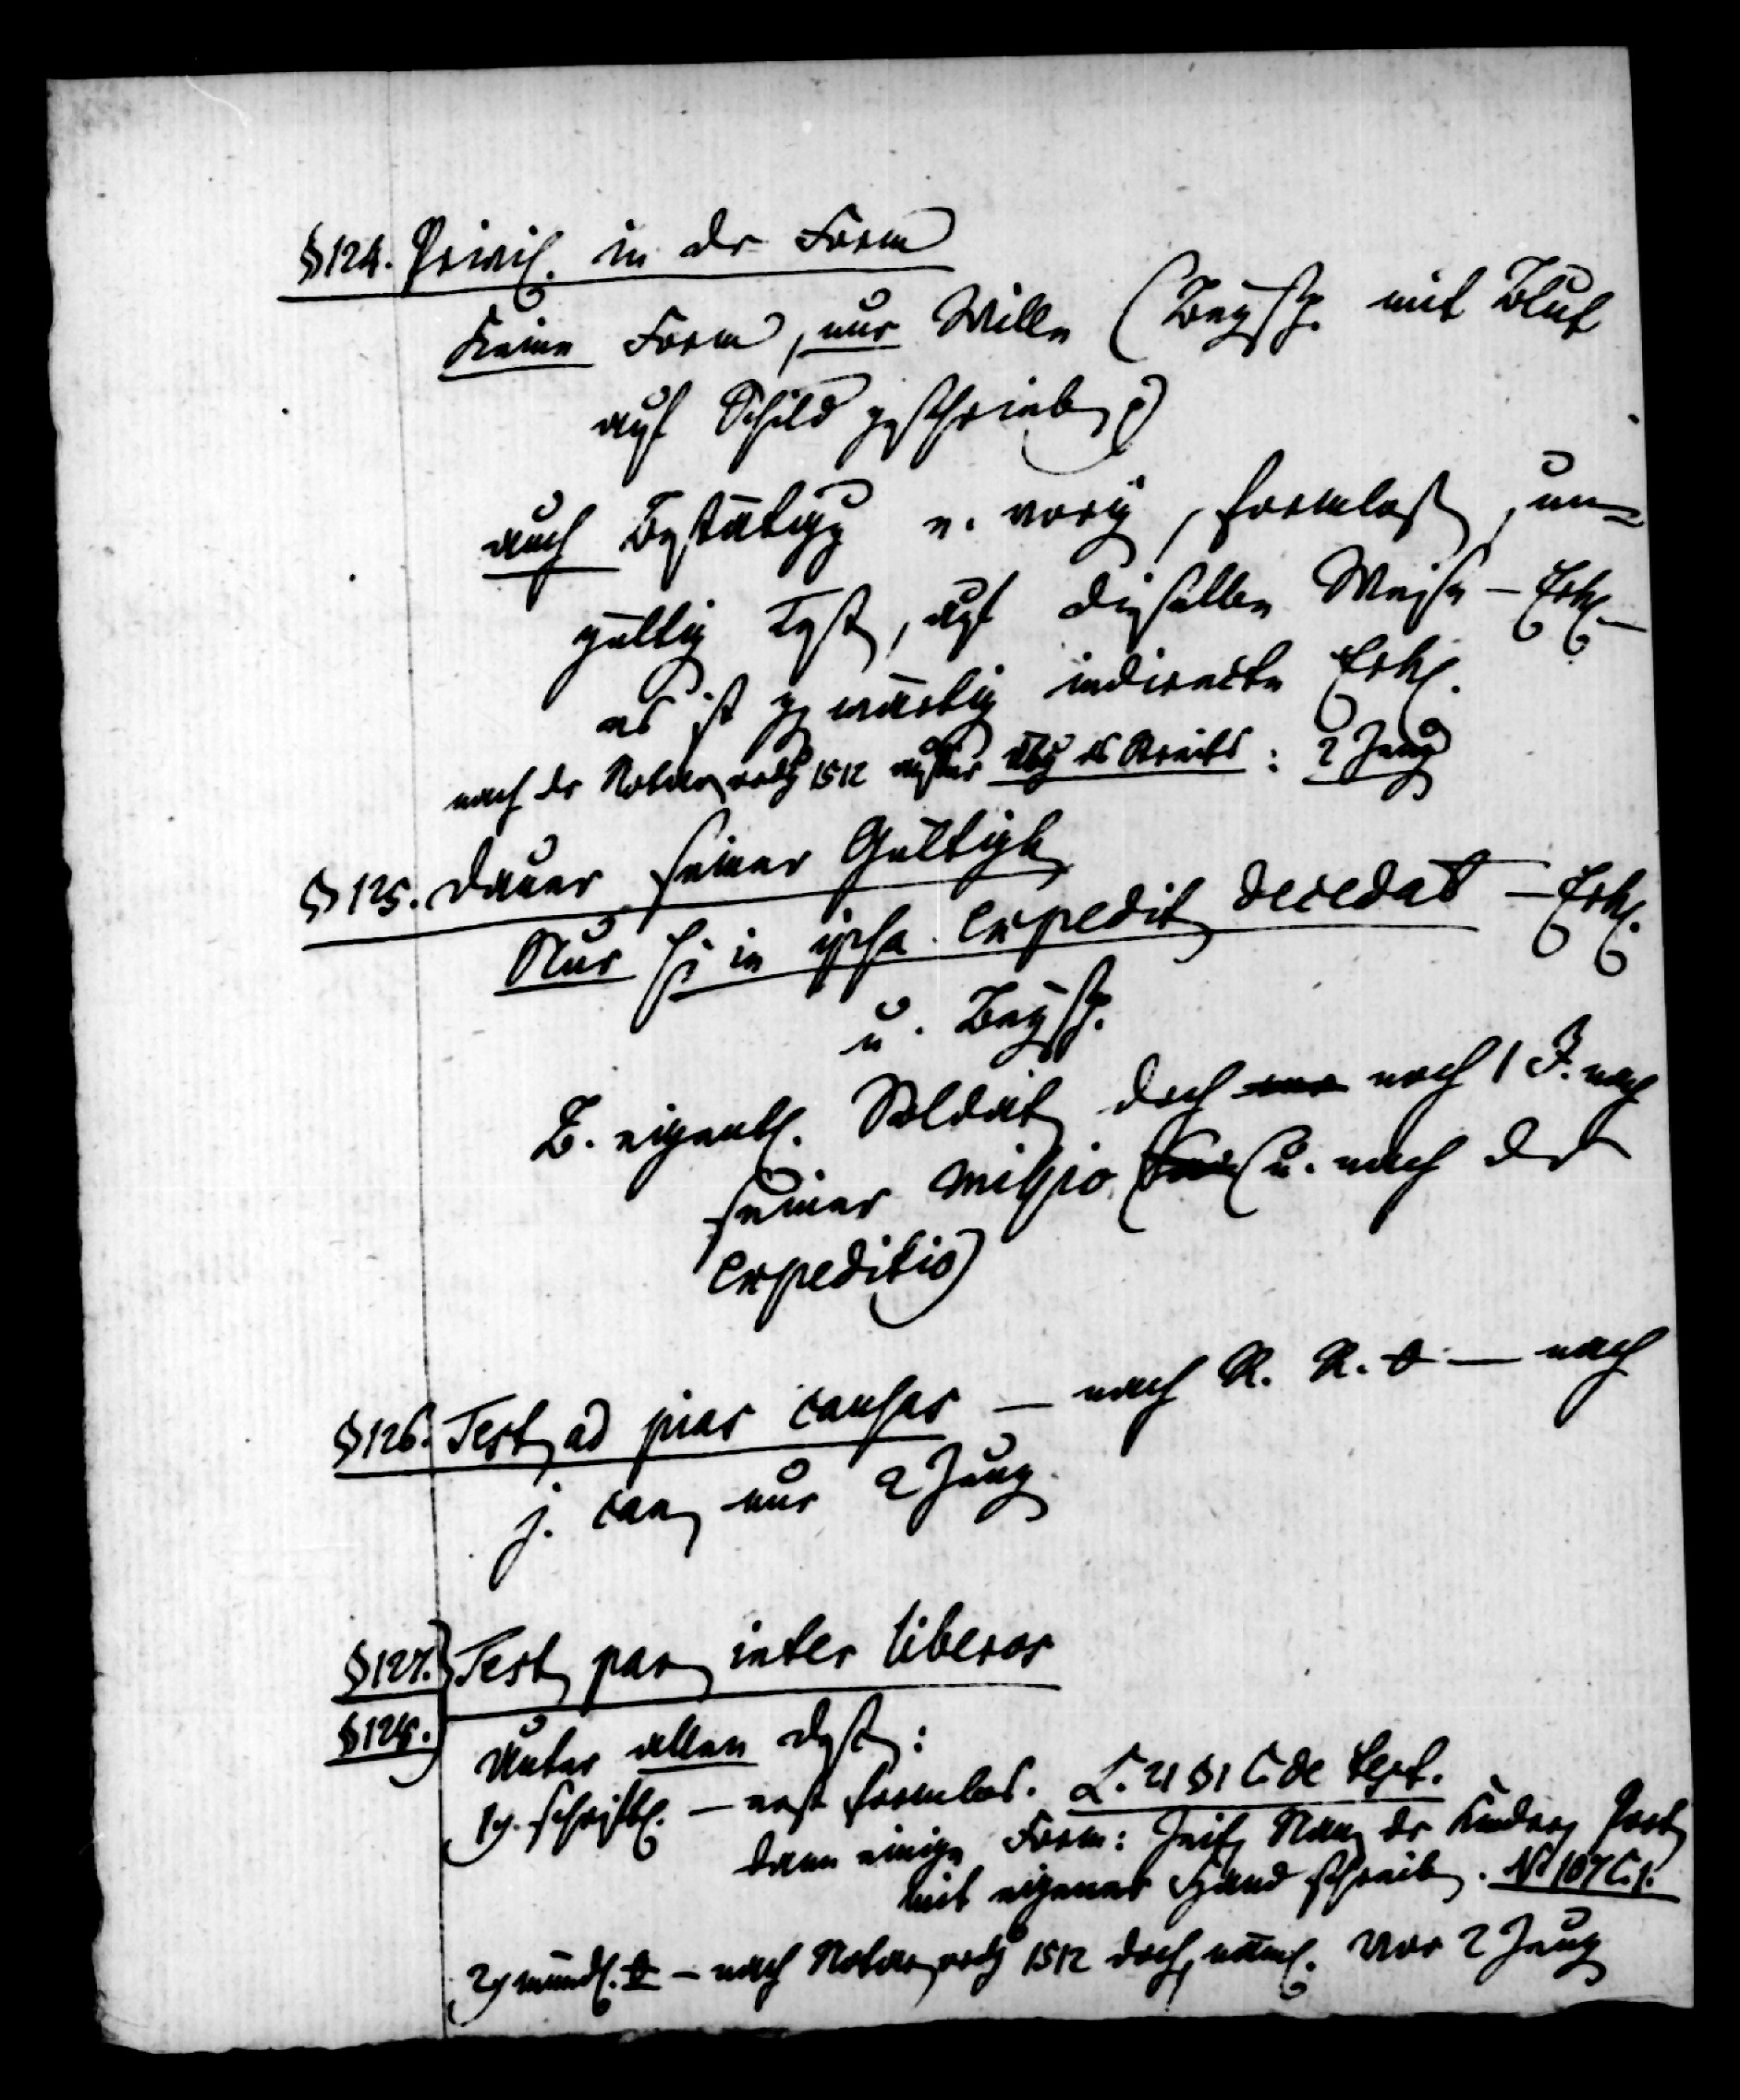 § 124. Privil. in der Form
Keine Form, nur Wille (Beysp. mit Blut
auf Schild geschrieben)
auch Bestätigg e. vorig, formlosen, un=
gültig Test, auf dieselbe Weise – Erkl. –
es ist ggwärtig indirecte Erkl.
nach der Notar ordg 1512 außer des Streits : 2 Zeug
§ 125. Dauer seiner Gültigk
Nur si in ipsa expedit decedat – Erkl.
u. Beysp.
B. eigentl. Soldat doch noch 1 J. nach
seiner missio (u. nach der
expeditio)
§ 126. Test ad pias causas – nach R. R. – nach
j. can nur 2 Zeug.
§ 127. Test par inter liberos
§ 128.
Unter allen Dest :
1) schriftl. – erst formlos. L. 21 § 1 C. de test.
dann einige Form: Zeit, Nam der Kinder, Port
mit eigener Hand schreib. N. 107 C. 1.
2) mündl. – nach Notar ordg 1512 doch, näml. vor 2 Zeug